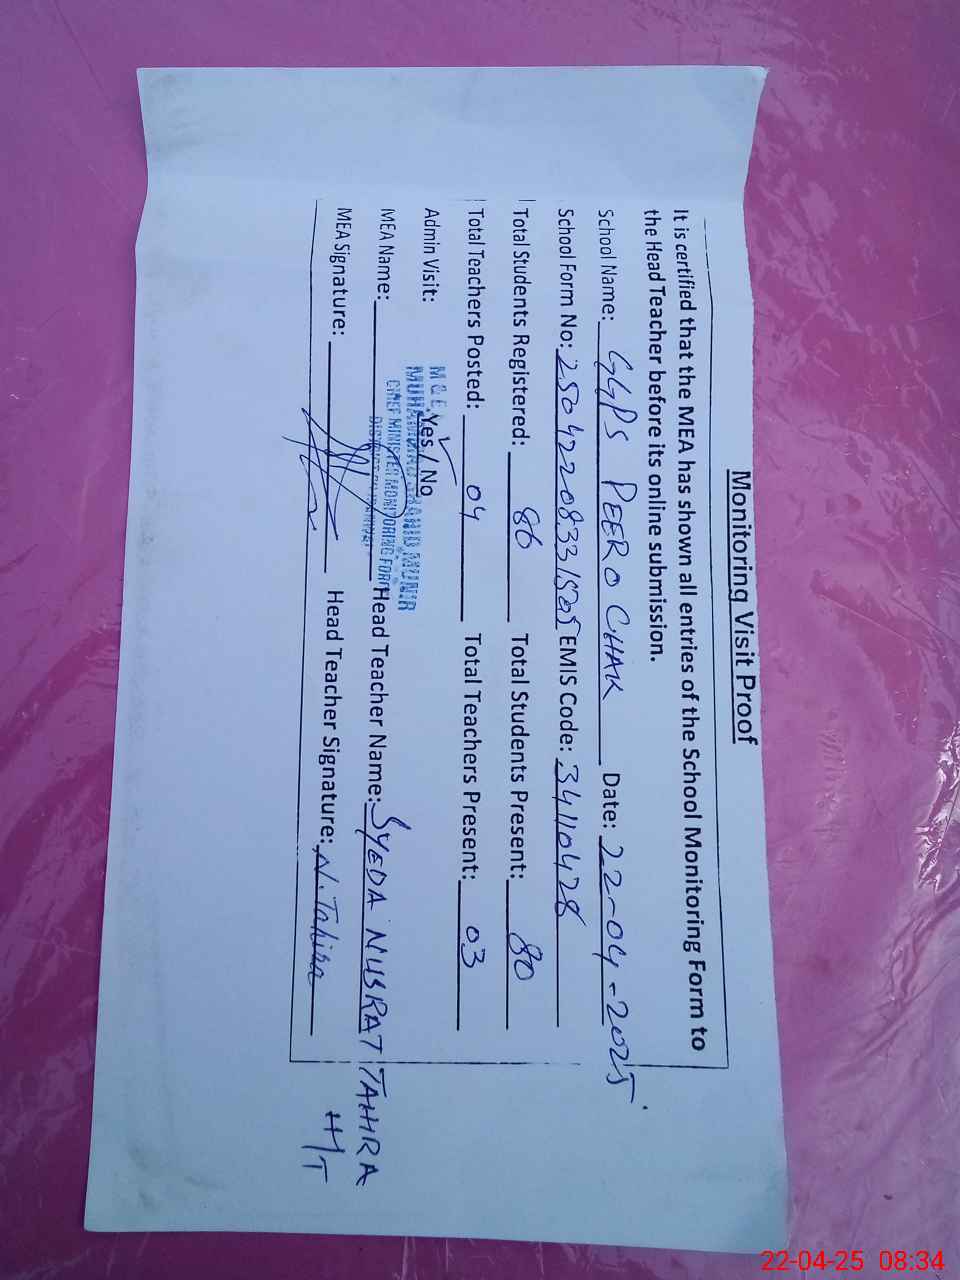 Monitoring Visit Proof
It is certified that the MEA has shown all entries of the School Monitoring Form to
the Head Teacher before its online submission.
School Name: GGPS PEERO CHAK Date: 22-04-2025
School Form No: EMIS Code: 34110428
Total Students Registered: 86 Total Students Present: 80
Total Teachers Posted: 04 Total Teachers Present: 03
Admin Visit: Yes / No
M & E
MUHAMMAD SHAHID MUNIR
CHIEF MINISTER MONITORING FORCE
DISTRICT
MEA Name: Head Teacher Name: SYEDA NUSRAT TAHRA
MEA Signature: Head Teacher Signature: N. Tahira H/T
22-04-25 08:34